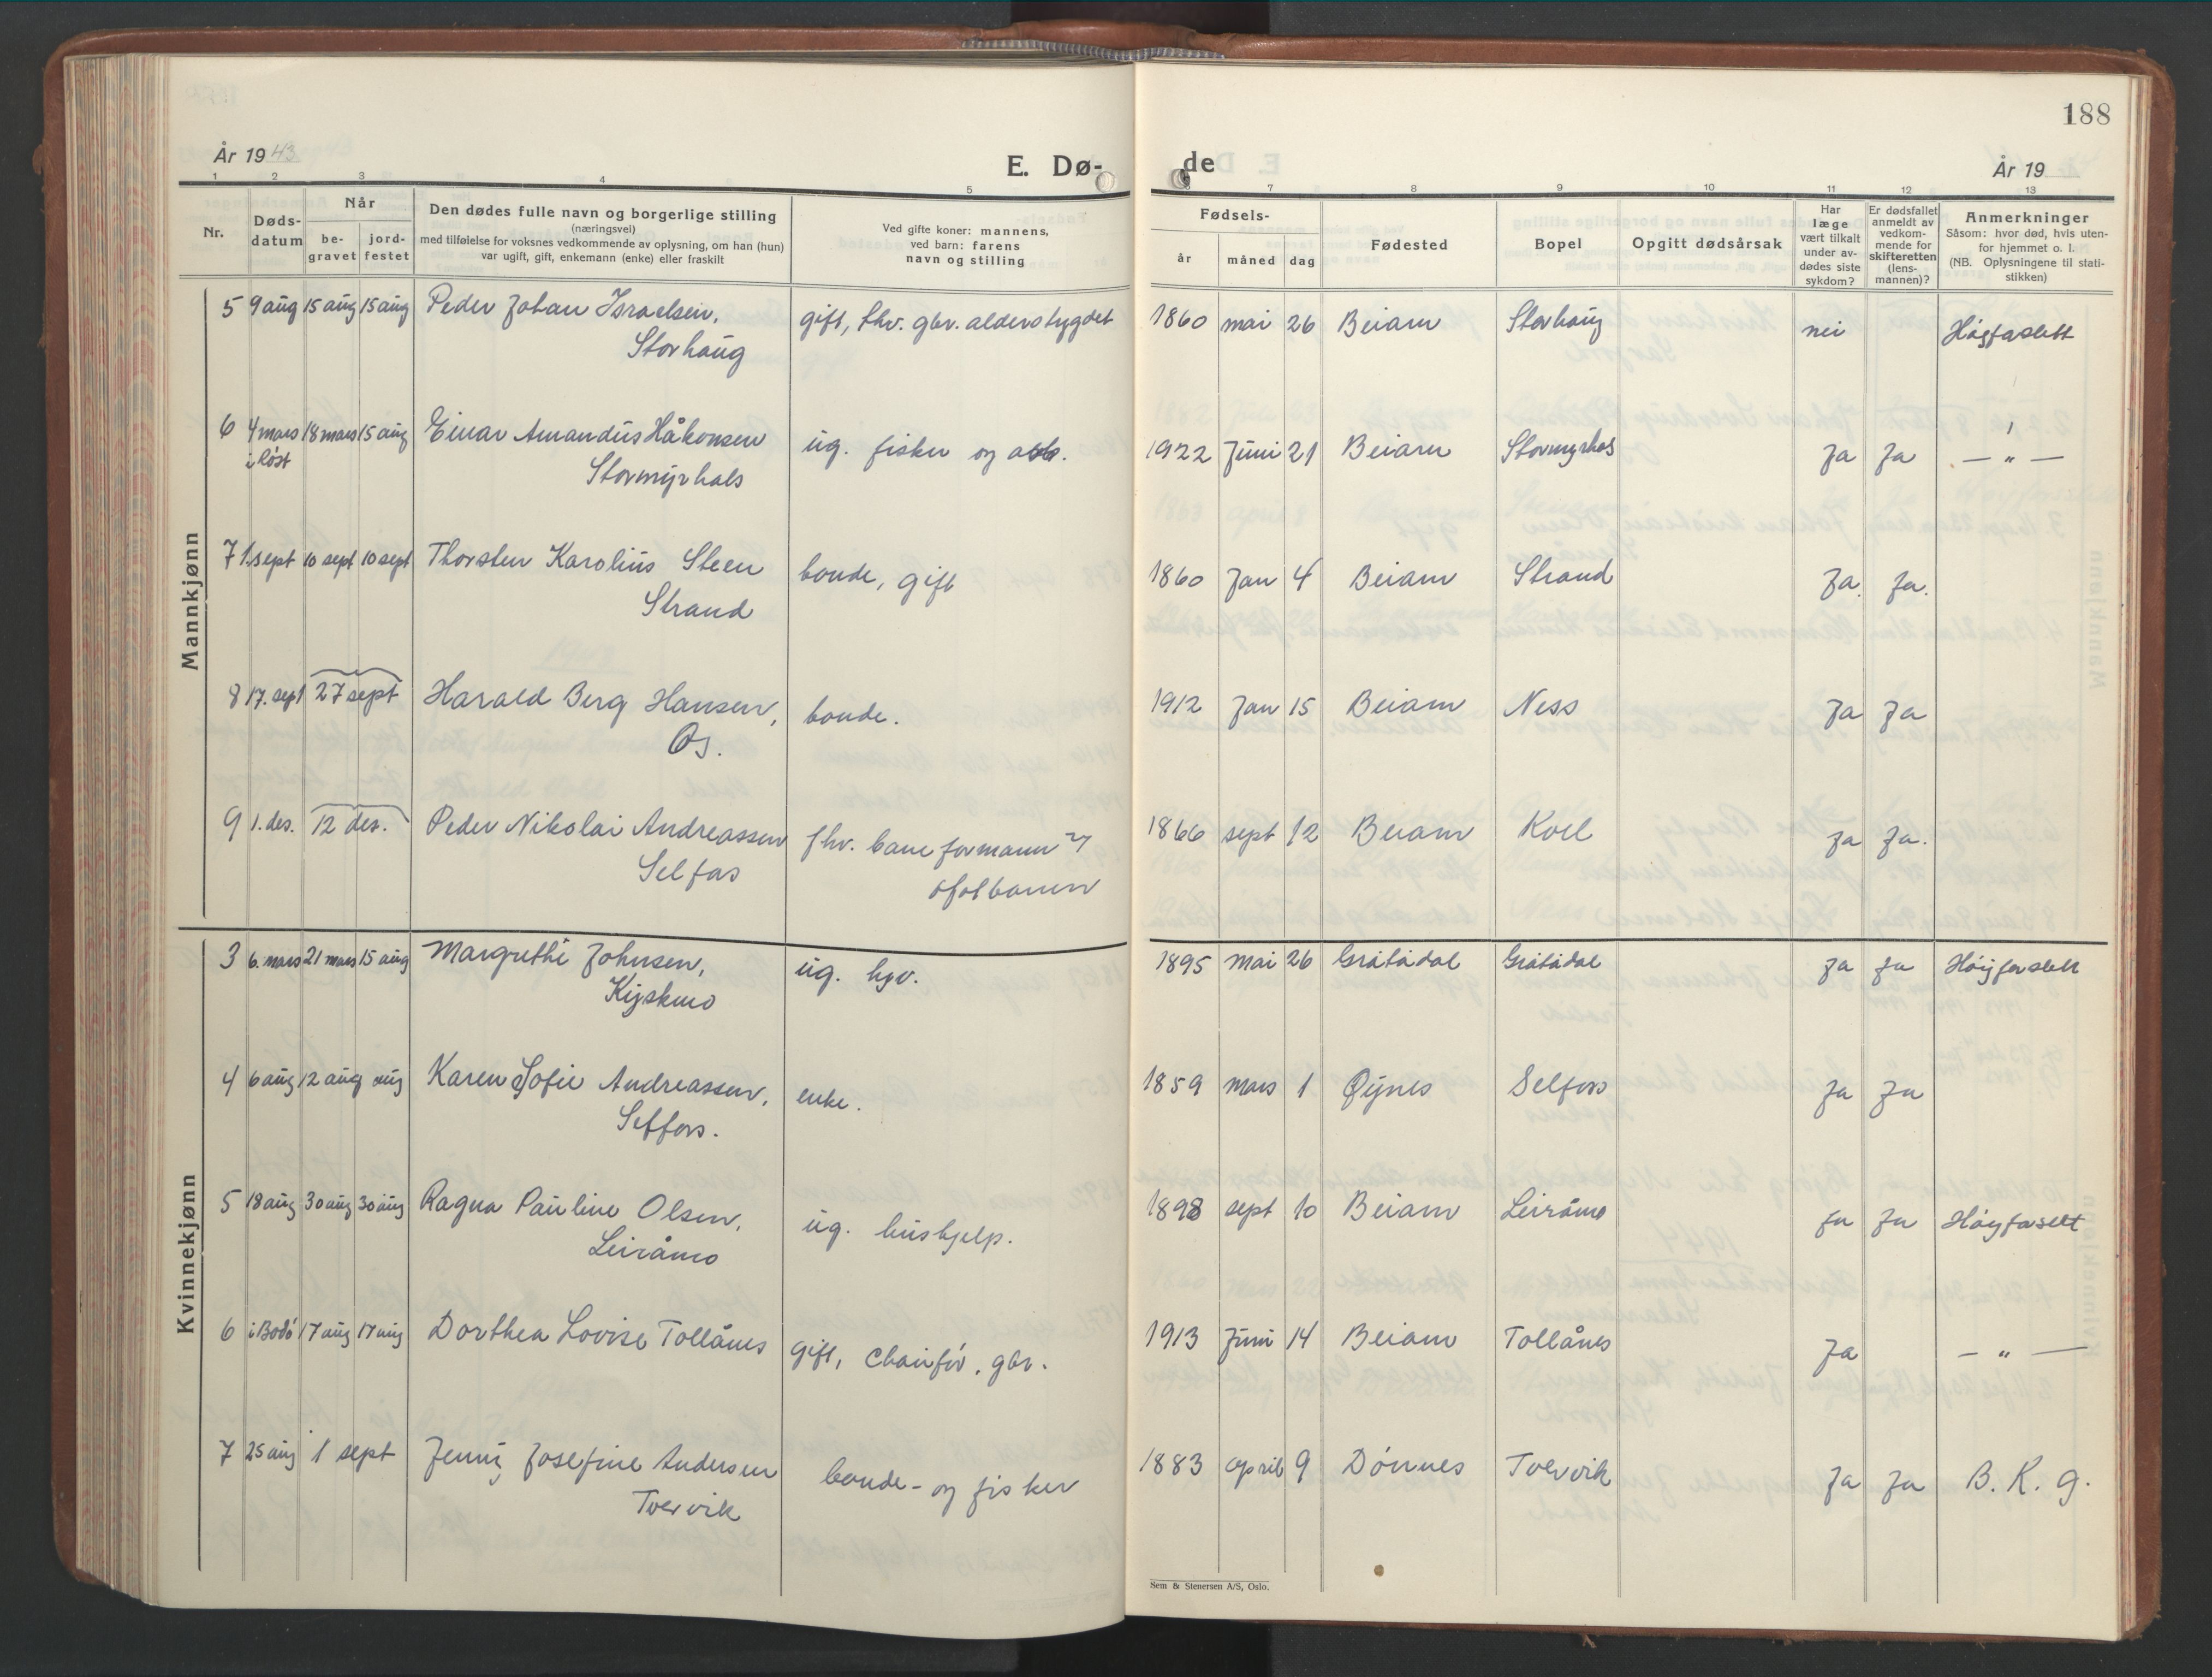 188
År 1943
E. Dø-
de
År 19
1 2 3 4 5 7 8 9 10 11 12 13
Nr.
Døds-
datum
Når
be-
gravet
jord-
festet
Den dødes fulle navn og borgerlige stilling
(næringsvei)
med tilføielse for voksnes vedkommende av oplysning, om han (hun)
var ugift, gift, enkemann (enke) eller fraskilt
Ved gifte koner: mannens,
ved barn: farens
navn og stilling
Fødsels-
år måned dag
Fødested
Bopel
Opgitt dødsårsak
Har
læge
vært tilkalt
under av-
dødes siste
sykdom?
Er dødsfallet
anmeldt av
vedkom-
mende for
skifteretten
(lens-
mannen)?
Anmerkninger
Såsom: hvor død, hvis uten-
for hjemmet o. l.
(NB. Oplysningene til stati-
stikken)
Mannkjønn
5 9 aug 15 aug 15 aug Peder Johan Israelsen, gift, fhv. gbr. alderstygdet 1860 mai 26 Beiarn Storhaug nei Høgfaslett
Storhaug
6 4 mars 18 mars 15 aug Einar Amandus Håkonsen ug. fisker og arb. 1922 Juni 21 Beiarn Stormyrhals Ja Ja — " —
i Røst Stormyrhals
7 1. sept 10 sept 10 sept Thorsten Karolius Steen bonde, gift 1860 Jan 4 Beiarn Strand Ja. Ja.
Strand
8 17. sept 27 sept Harald Berg Hansen, bonde. 1912 Jan 15 Beiarn Ness Ja Ja
Os.
9 1. des. 12 des. Peder Nikolai Andreassen fhv. baneformann v 1866 sept 12 Beiarn Koll Ja Ja.
Selfors ofotbanen
Kvinnekjønn
3 6. mars 21 mars 15 aug Margrethe Johnsen, ug. hgv. 1895 mai 26 Gråtådal Gråtådal Ja Ja Høgfaslett
Kjyskmo
4 6 aug 12 aug aug Karen Sofie Andreassen, enke. 1859 mars 1 Øynes Selfors Ja Ja
Selfors.
5 18 aug 30 aug 30 aug Ragna Pauline Olsen, ug. hushjelp. 1898 sept 10 Beiarn Leiråmo Ja Ja Høgfaslett
Leiråmo
6 i Bodø 17 aug 17 aug Dorthea Lovise Tollånes gift, Chaufør, gbr. 1913 Juni 14 Beiarn Tollånes Ja — " —
7 25 aug 1 sept Jenny Josefine Andersen bonde- og fisker 1883 april 9 Dønnes Tvervik Ja Ja B. K. g.
Tvervik
Sem & Stenersen A/S, Oslo.